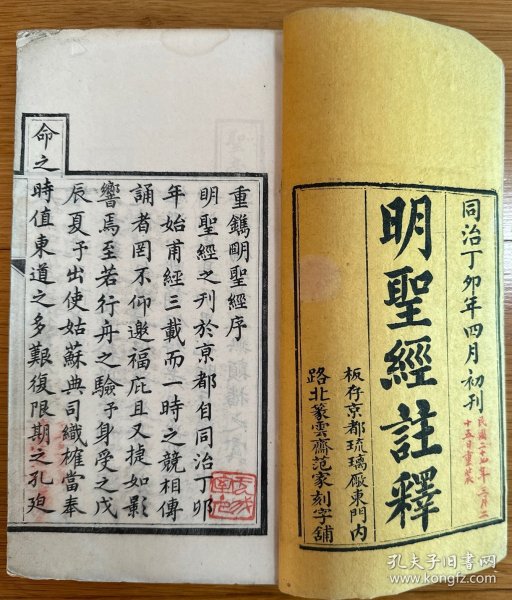 同治丁卯年四月初刊
明聖經註釋
板存京都琉璃厰東門内
路北篆雲齋范家刻字舖
十五日重裝
重鐫明聖經序
明聖經之刊於京都自同治丁卯
年始甫經三載而一時之競相傳
誦者罔不仰邀福庇且又捷如影
響焉至若行舟之驗予身受之戊
辰夏予出使姑蘇典司織榷當奉
命之時值東道之多艱復限期之孔廹
孔夫子旧书网
www.kongfz.com